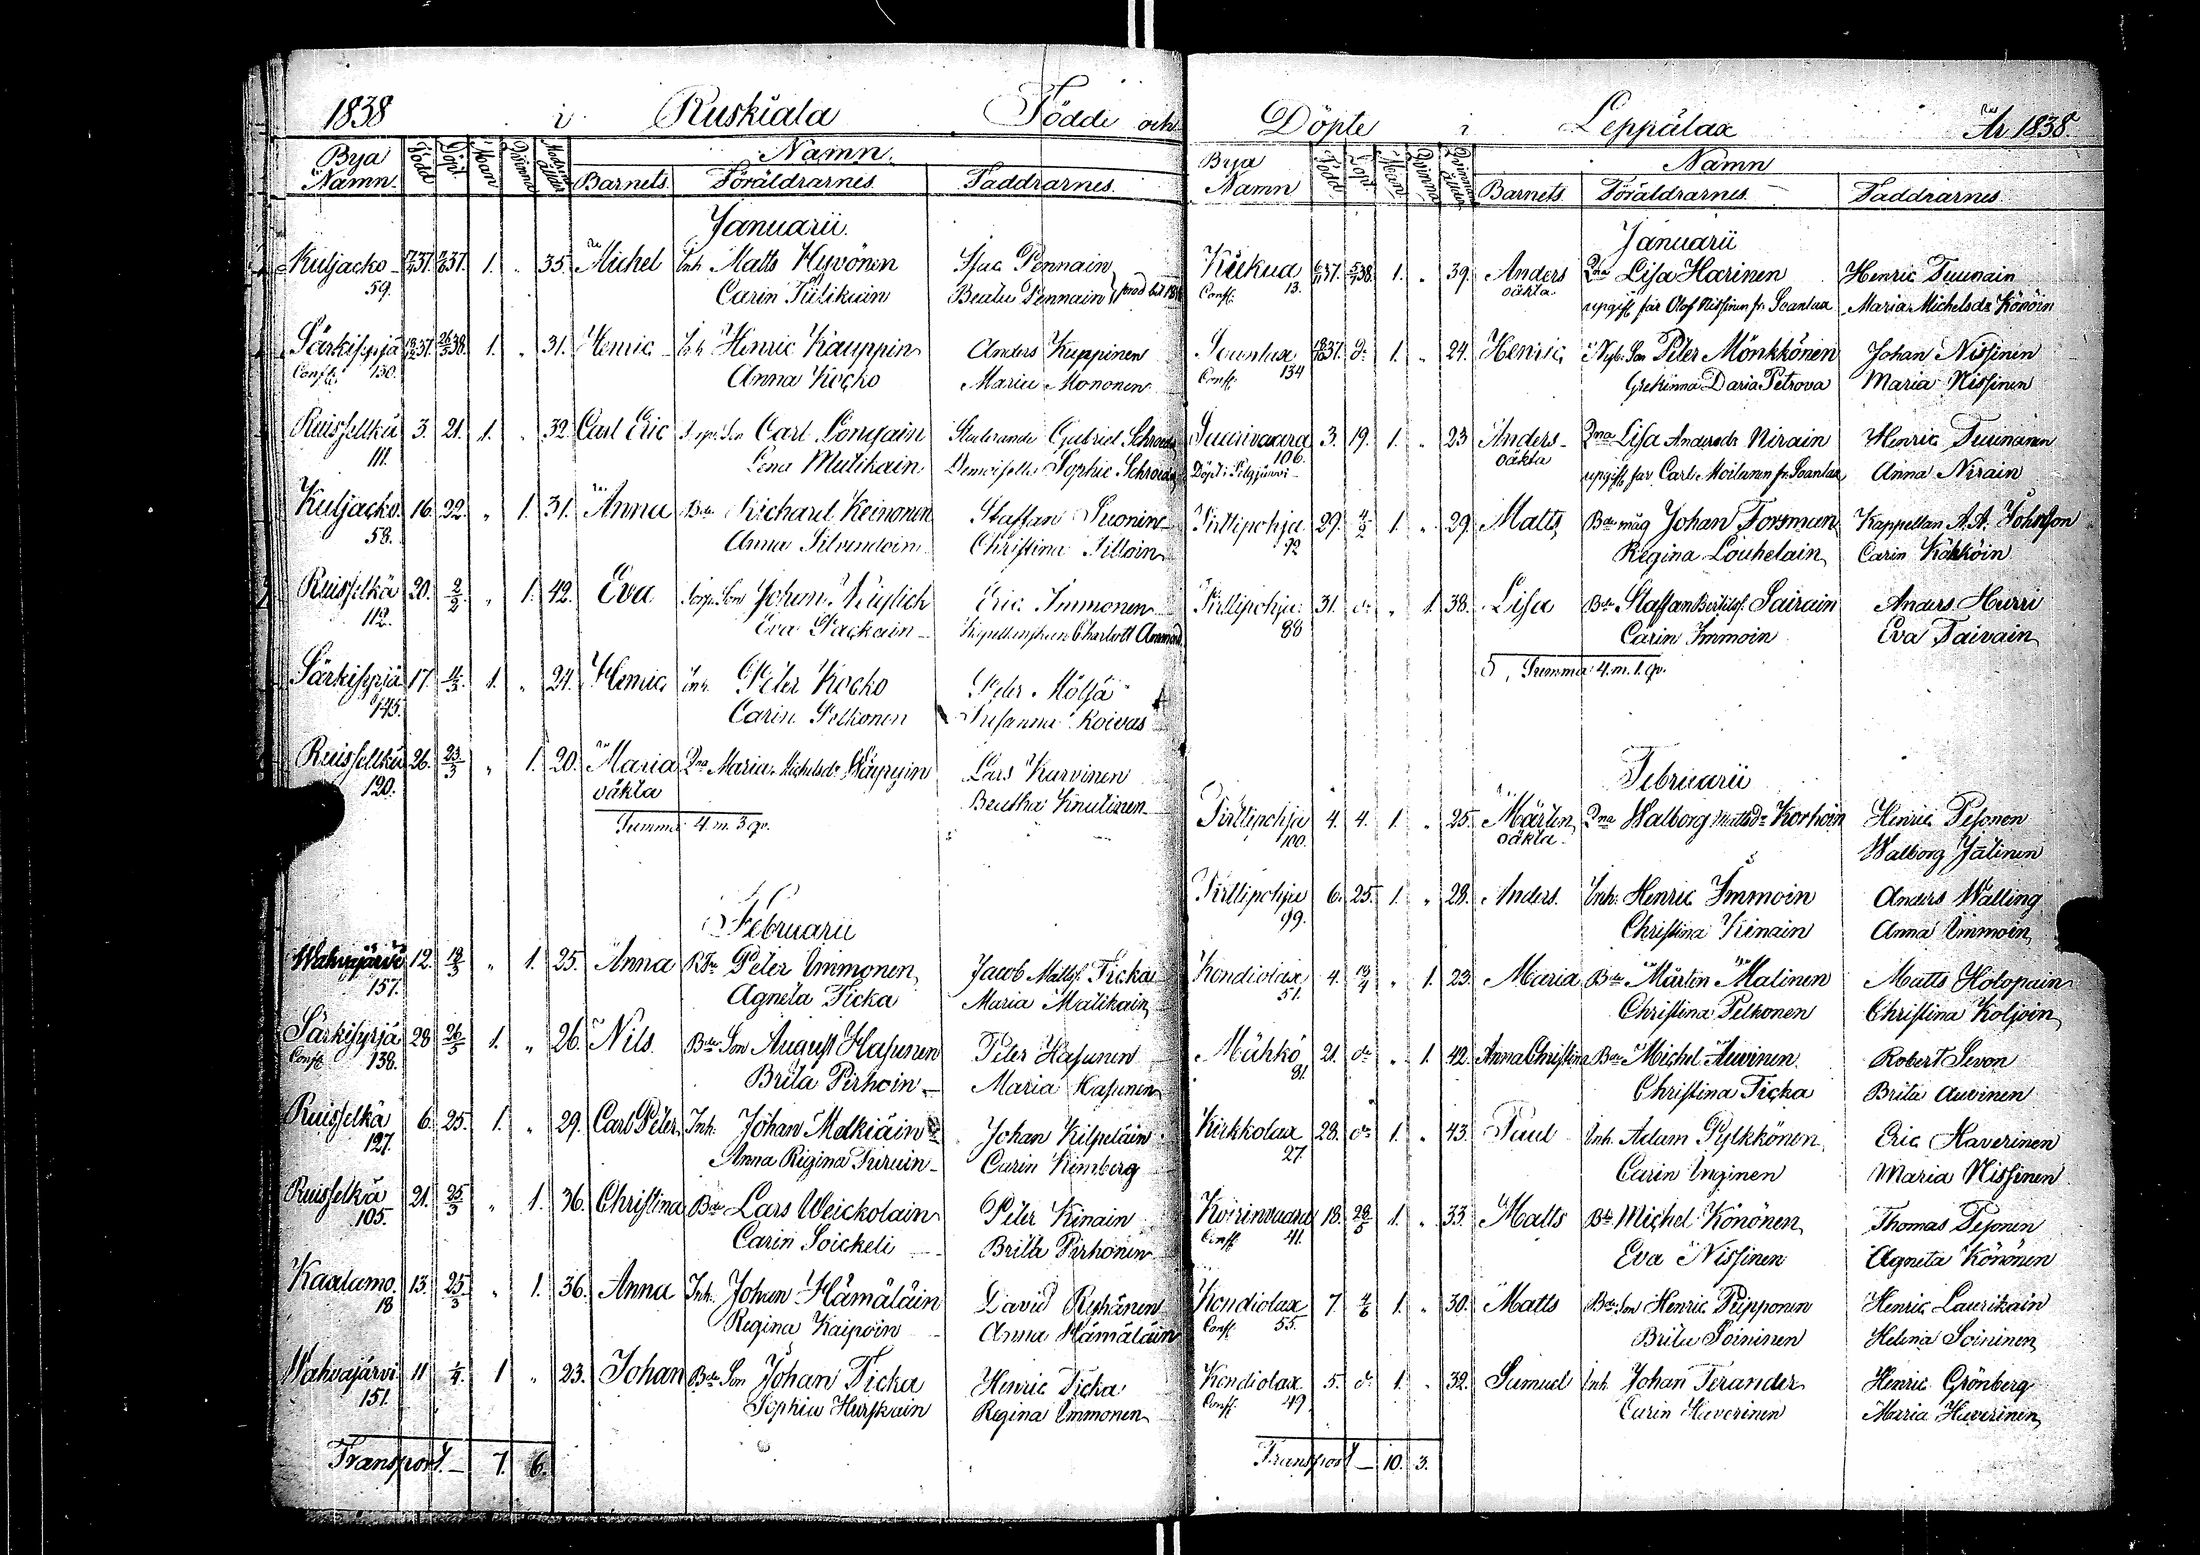 1838 i Ruskiala Födde och
Bya Namn. Född Döpt Man Qvinna Moderns ålder Namn.
Barnets. Föräldrarnes. Faddrarnes.
Januarii.
Kuljacko 37. 37. 1. " 35. Michel Inh. Matts Hyvönen Isac Pennain
59. Carin Tiilikain Beata Pennain
Särkisyrjä 37. 38. 1. " 31. Henric Inh. Henric Kauppin Anders Kuppinen
Confl. 130. Anna Kocko Maria Mononen
Ruisselkä 3. 21. 1. " 32. Carl Eric Carl Lena Gabriel
111. Lena Mutikain Demoiselle Sophie
Kuljacko 16. 22. " 1. 31. Anna Bde Richard Keinonen Staffan Suonin
58. Anna Silvendoin Christina Silloin
Ruisselkä 20. 2/2. " 1. 42. Eva Torp. Son Johan Eric Immonen
112. Eva Packain Charlott
Särkisyrjä 17. 4/3. 1. " 24. Henric Inh. Peter Kocko Peter Möljä
145. Carin Pelkonen Susanna Koivas
Ruisselkä 26. 23/3 " 1. 20. Maria Qna Maria Michelsdr Wäyryin Lars Karvinen
120. oäkta Bretha Knutinen
Summa 4. m. 3 qv.
Februarii
Wahvajärvi 12. 18/3 " 1. 25. Anna Bde Peter Immonen Jacob Mattss. Ticka
157. Agneta Ticka Maria Matikain
Särkisyrjä 28 26/3 1. " 26. Nils. Bde Son August Hasunen Peter Hasunen
Confl. 138. Brita Pirhoin Maria Hasunen
Ruisselkä 6. 25. 1. " 29. Carl Peter. Inh. Johan Melkiäin Johan Kilpeläin
127. Anna Regina Turuin Carin Kimberg
Ruisselkä 21. 25/3 " 1. 36. Christina Bde Lars Weickolain Peter Kinain
105. Carin Soickeli Brita Pirhonen
Kaalamo. 13. 25/3 " 1. 36. Anna Inh. Johan Hämäläin David Reskänen
18 Regina Kaipoin Anna Hämäläin
Wahvajärvi 11 1/4. 1 " 23. Johan Bde Son Johan Ticka Henric Ticka
151. Sophia Hurskain Regina Immonen
Transport. 7. 6.
Döpte i Leppälax År 1838.
Bya Namn Född Döpt Man Qvinna Qvinnans ålder Namn
Barnets. Föräldrarnes. Faddrarnes.
Januarii
Kiekua 37. 38. 1. " 39. Anders Qna Lisa Harinen Henric Tuunain
Confl. 13. oäkta upgift far Olof Nissinen fr. Soanlax Maria Michelsdr Könöin
Soanlax 37. do 1. " 24. Henric Nyb. Son Peter Mönkkönen Johan Nissinen
Confl. 134 Grekinna Daria Petrova Maria Nissinen
Suurivaara 3. 19. 1. " 23 Anders Qna Lisa Andersdr Nirain Henric Tuunanen
106. oäkta upgift far Carl Moilanen fr. Soanlax Anna Nirain
Döpt i Pelgjärvi
Pirttipohja 29. 4/2 1. " 29. Matts Bde måg Johan Forsman Kappellan A. A. Johnsson
92 Regina Louhelain Carin Kähköin
Pirttipohja 31. do " 1. 38. Lisa Bde Staffan Bertilss. Sairain Anders Hurri
88 Carin Immoin Eva Taivain
5, Summa 4. m. 1. qv.
Februarii
Pirttipohja 4. 4. 1. " 25. Mårten Qna Walborg Mattsdr Korhoin Henric Pesonen
100. oäkta. Walborg Jälinen
Pirttipohja 6. 25. 1. " 28. Anders. Inh. Henric Immoin Anders Walling
99. Christina Kinain Anna Immoin
Kondiolax 4. 13/4 " 1. 23. Maria Bde Mårten Malinen Matts Holopain
51. Christina Pelkonen Christina Koljoin
Mühkö 21. do " 1. 42. Anna Christina Bde Michel Auvinen Robert Sevon
81. Christina Ticka Brita Auvinen
Kirkkolax 28. do 1. " 43. Paul Inh. Adam Pylkkönen Eric Haverinen
27. Carin Inginen Maria Nissinen
Koirinvaara 18. 28/5 1. " 33. Matts Bde Michel Könönen Thomas Pesonen
Confl. 41. Eva Nissinen Agneta Könönen
Kondiolax 7. 4/6 1. " 30. Matts Bde Son Henric Piipponen Henric Laurikain
Confl. 55. Brita Soininen Helena Soininen
Kondiolax 5. do 1. " 32. Samuel Inh. Johan Terander Henric Grönberg
Confl. 49 Carin Haverinen Maria Haverinen
Transport 10. 3.